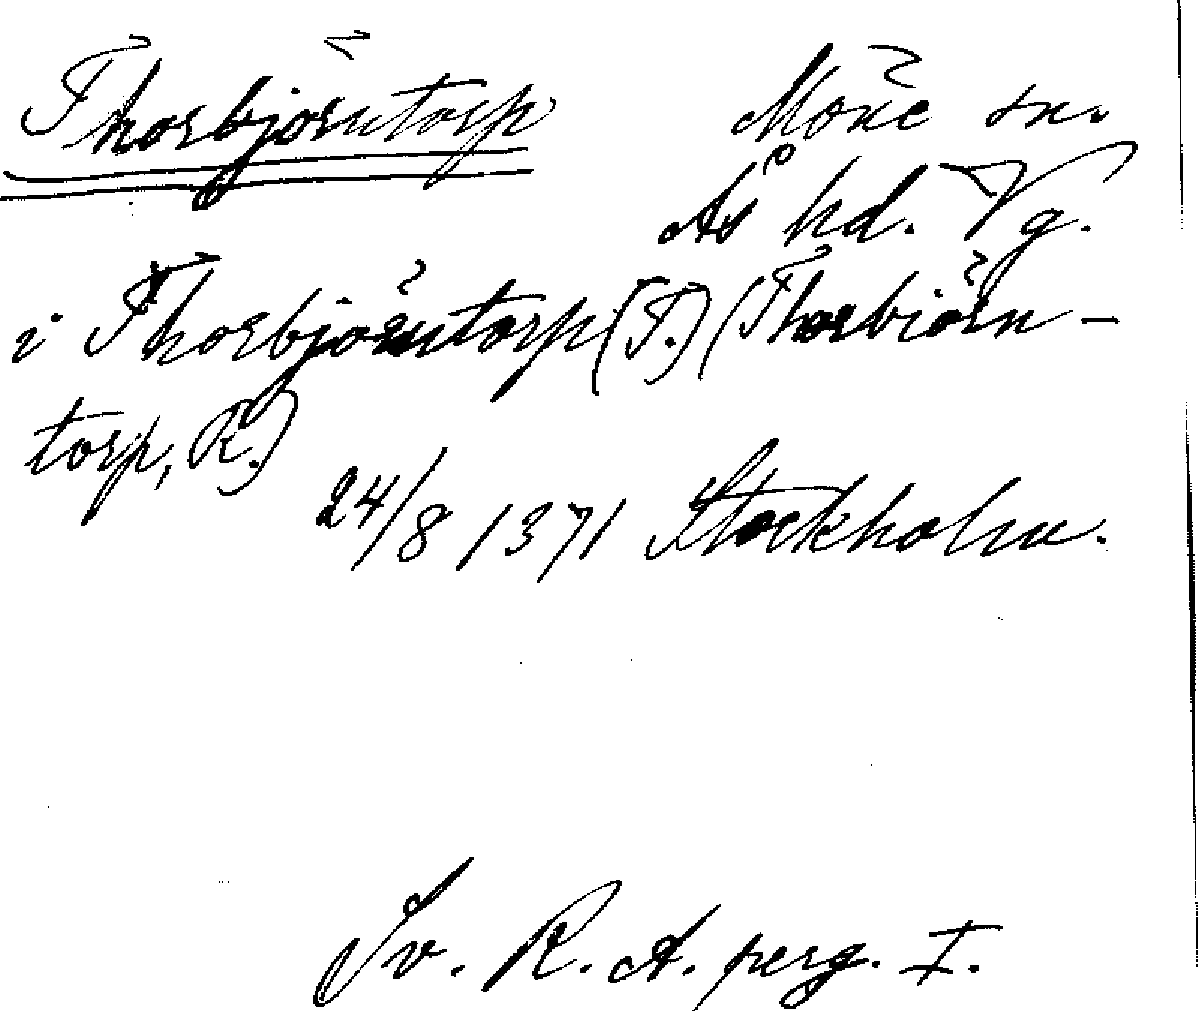 Thorbjörntorp
Möne sn.
Ås hd. Vg.
i Thorbjörntorp (T.) (Thorbiörn-
torp, R.)
24/8 1371 Stockholm.
Sv. R. A. perg. I.